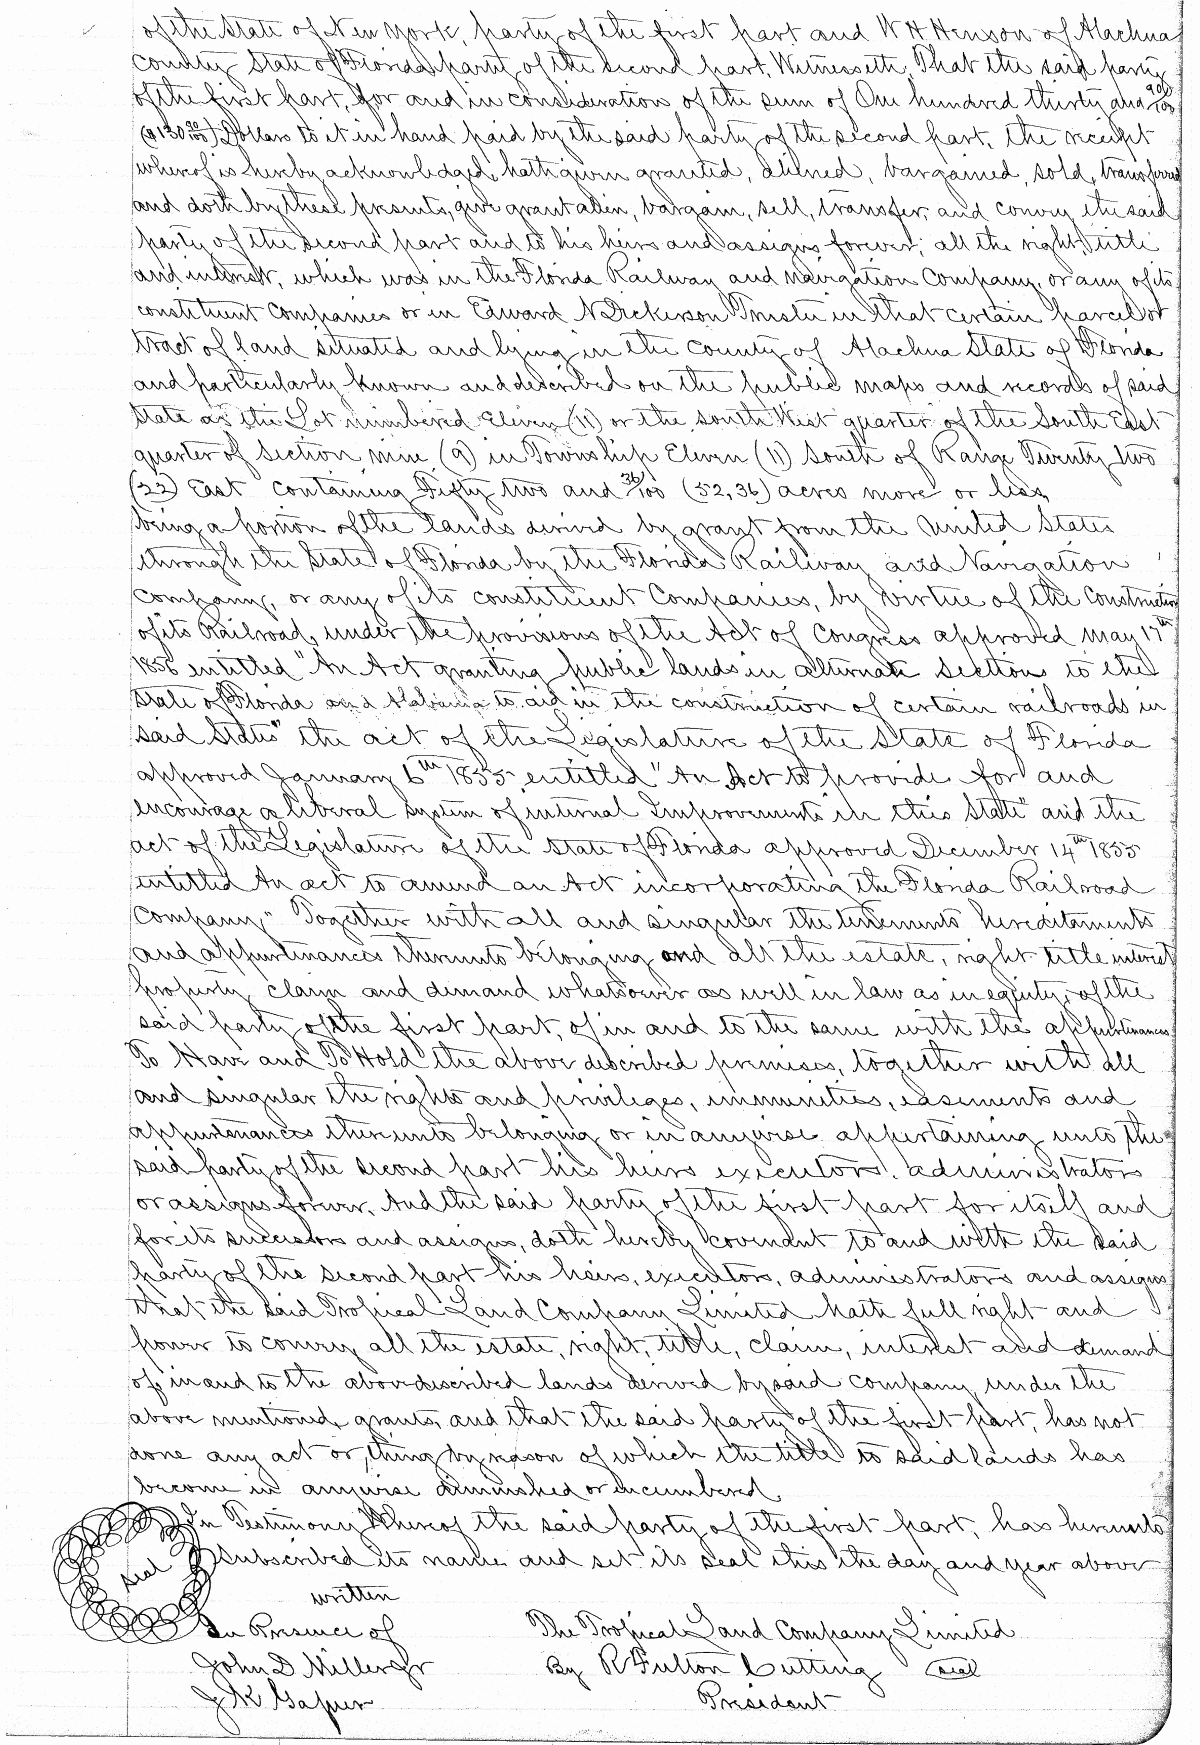 of the State of New York, party of the first part and W H Henson of Alachua
County State of Florida party of the second part, Witnesseth, That the said party
of the first part, for and in consideration of the sum of One hundred thirty and 90/100
($130 90/100) Dollars to it in hand paid by the said party of the second part, the receipt
whereof is hereby acknowledged, hath given granted, aliened, bargained, sold, transferred
and doth by these presents, give grant alien, bargain, sell, transfer, and convey the said
party of the second part and to his heirs and assigns forever, all the right, title
and interest, which was in the Florida Railway and Navigation Company, or any of its
constituent Companies or in Edward N Dickerson Trustee in that certain parcel or
tract of land situated and lying in the County of Alachua State of Florida
and particularly known and described on the public maps and records of said
State as the Lot numbered Eleven (11) or the South West quarter of the South East
quarter of Section nine (9) in Township Eleven (11) South of Range Twenty two
(22) East containing Fifty two and 36/100 (52,36) acres more or less,
being a portion of the lands derived by grant from the United States
through the State of Florida by the Florida Railway and Navigation
Company, or any of its constituent Companies, by virtue of the Construction
of its Railroad, under the provisions of the Act of Congress approved May 17th
1856 entitled "An Act granting public lands in alternate Sections to the
State of Florida and Alabama to aid in the construction of certain railroads in
said States" the act of the Legislature of the State of Florida
approved January 6th 1855, entitled "An Act to provide for and
encourage a liberal system of internal Improvements in this State" and the
act of the Legislature of the State of Florida approved December 14th 1855
entitled An act to amend an Act incorporating the Florida Railroad
Company," Together with all and singular the tenements hereditaments
and appurtenances thereunto belonging and all the estate, right title interest
property, claim and demand whatsoever as well in law as in equity, of the
said party of the first part, of in and to the same with the appurtenances
To Have and To Hold the above described premises, together with all
and singular the rights and privileges, immunities, easements and
appurtenances thereunto belonging or in anywise appertaining unto the
said party of the second part his heirs executors, administrators
or assigns forever. And the said party of the first part for itself and
for its successors and assigns, doth hereby covenant to and with the said
party of the second part his heirs, executors, administrators and assigns,
that the said Tropical Land Company Limited hath full right and
power to convey all the estate, right, title, claim, interest and demand
of, in and to the above described lands derived by said company under the
above mentioned, grants, and that the said party of the first part, has not
done any act or, thing by reason of which the title to said lands has
become in anywise diminished or encumbered.
In Testimony Whereof the said party of the first part, has hereunto
subscribed its name and set its seal this the day and year above
seal
written
In Presence of
The Tropical Land Company Limited
John D Miller Jr
By R Fulton Cutting seal
J K
President